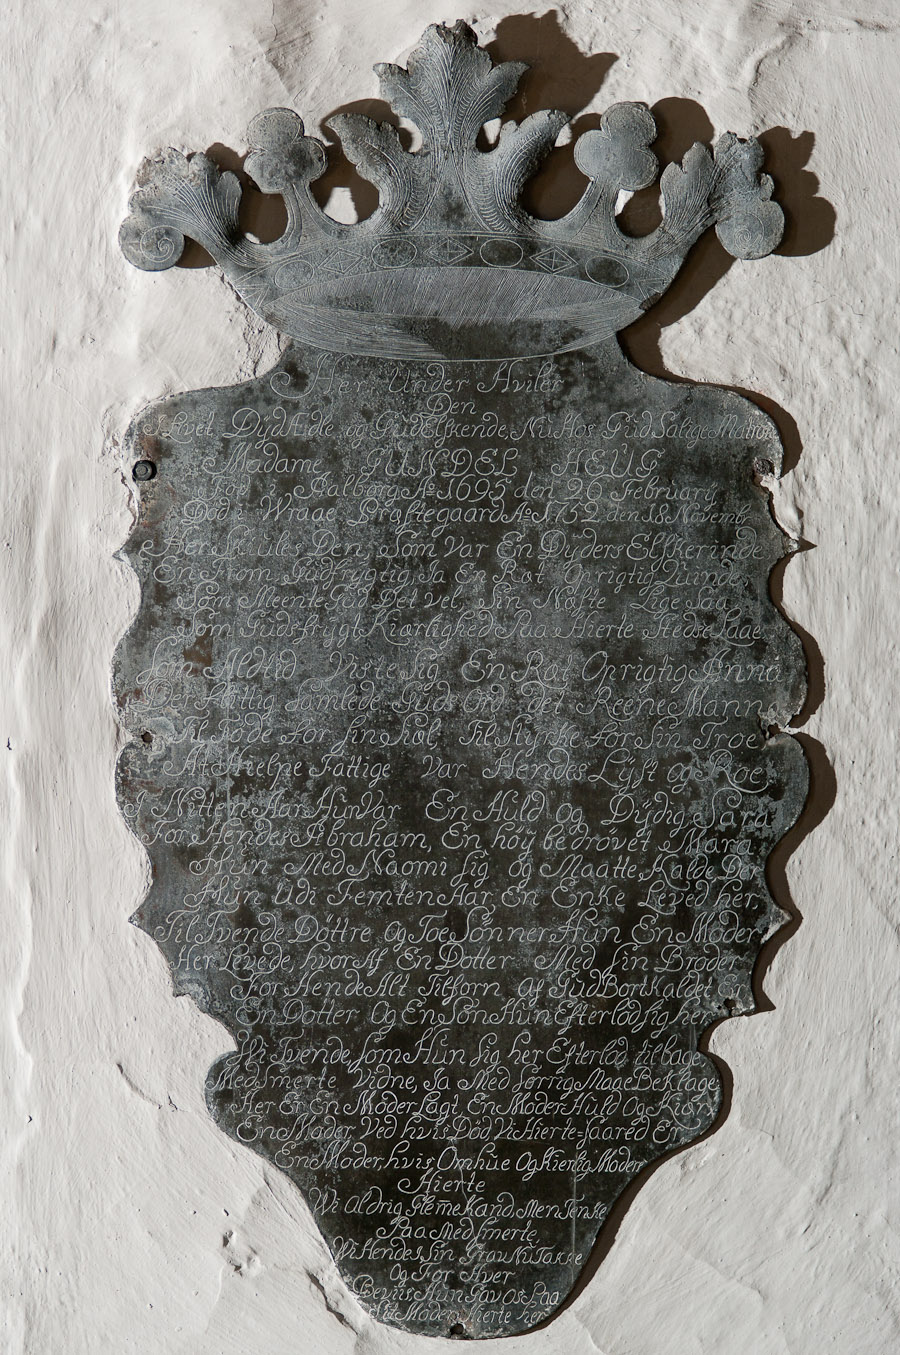 Her Under Aviler
Den
Dyd Ædle og Gud Elskende, Nu Hos Gud Salige Matron
Madame GUNDEL HEUG
Fød i Aalborg Aº 1695 den 26 February
Død i Wraae Præstegaard Aº 1752 den 18 Novemb.
Her Skiules Den, Som Var En Dyders Elskerinde
En From, Gudfrygtig, Ja En Ræt Oprigtig Quinde
Som Meente Gud Det vel, Sin Næste Lige Saa
Som Gudsfrygt Kiærlighed Paa Hierte Stedse Laae
Som Altiid Viste Sig En Ræt Oprigtig Anna
Da Flittig Samlede Guds Ord Det Reene Manna
Til Føde For Sin Siæl, Til Styrke for Sin Troe
At Hielpe Fattige Var Hendes Lyst og Roe
I Nitten Aar Hun Var En Huld og Dydig Sara
For Hendes Abraham, En høy bedrøvet Mara
Hun Med Naomi Sig og Maatte Kalde Der
Hun Udi Femten Aar, En Enke Leved her,
Til Tvende Døttre og Toe Sønner Hun En Moder
Her Levede hvor Af En Dotter Med Sin Broder
For Hende Alt Tilforn Af Gud Bortkaldet Er
En Dotter Og En Søn Hun Efterlod sig her
Vi Tvende Som Hun Sig her Efterlod tilbage
Med Smerte Vidne, Ja Med Sorrig Maae Beklage
Her Er En Moder Lagt, En Moder Huld Og Kiær
En Moder Ved hvis Død Vi Hierte=Saared Er
En Moder, hvis Omhue Og Kierlig Moder
Hierte
Wi aldrig Glemme kand Men Tenke
Paa Med Smerte,
Wi Hendes Sin Grav Nu Takke
Og For Hver
Beviis Hun Gav Os Paa
Sit Moder Hierte her